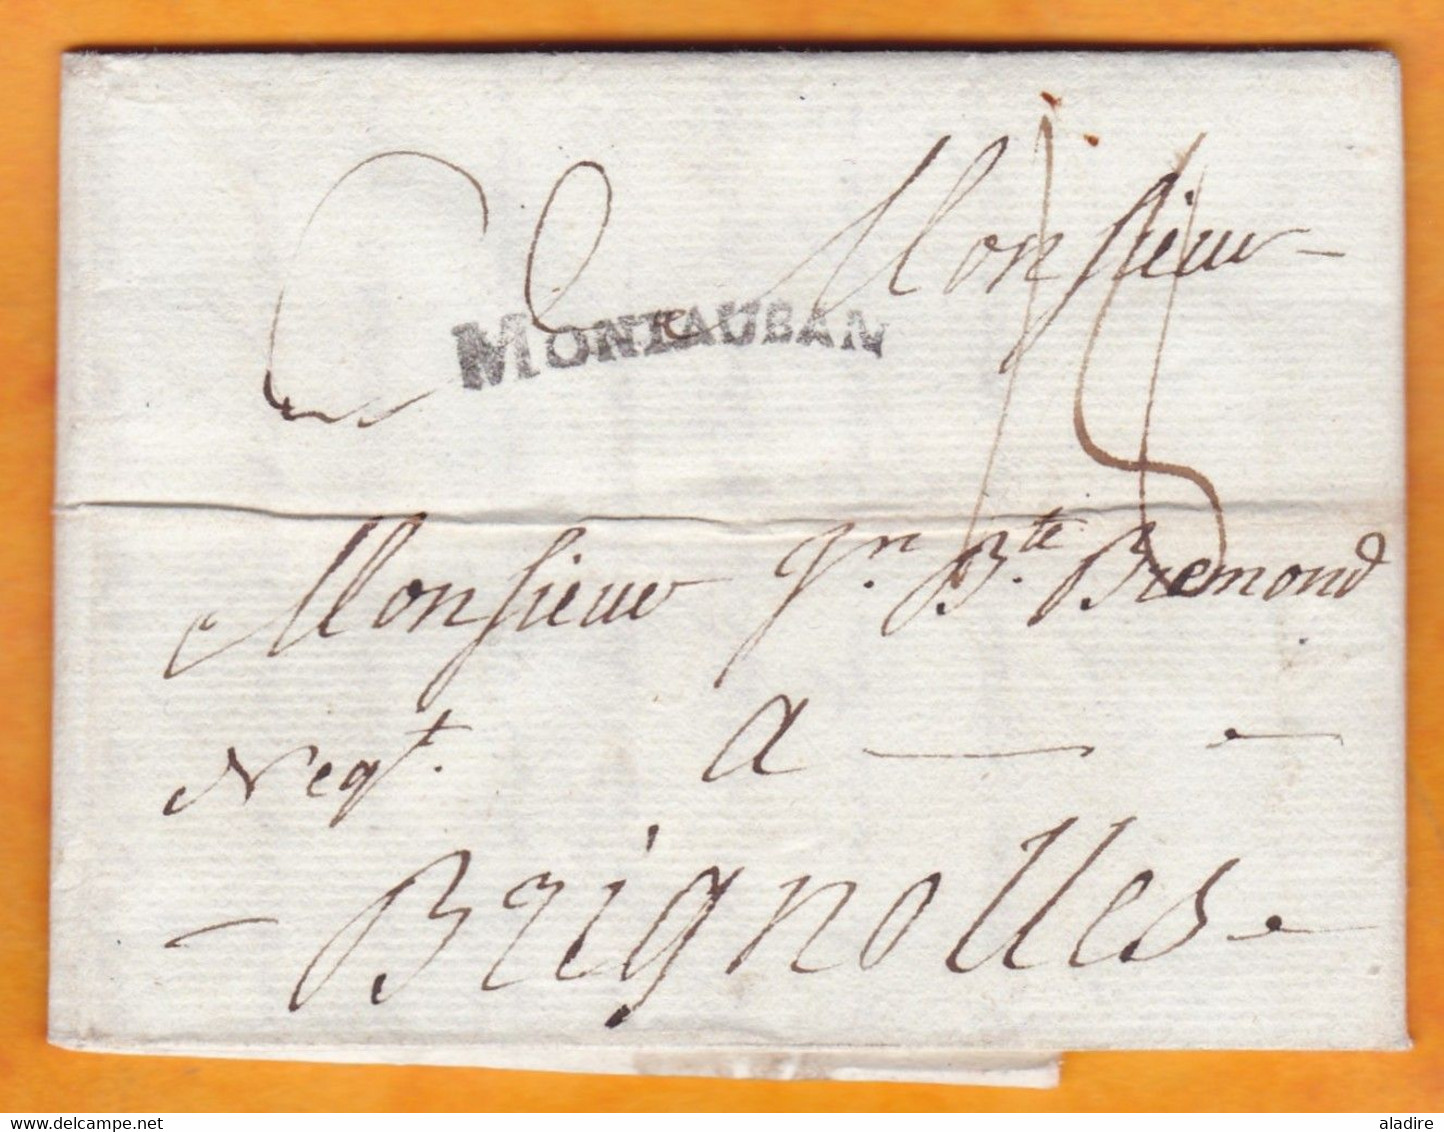 Monsieur
MONTAUBAN
Monsieur Jn. Bte. Bremond
Negt. a
Brignolles
www.delcampe.net
aladire